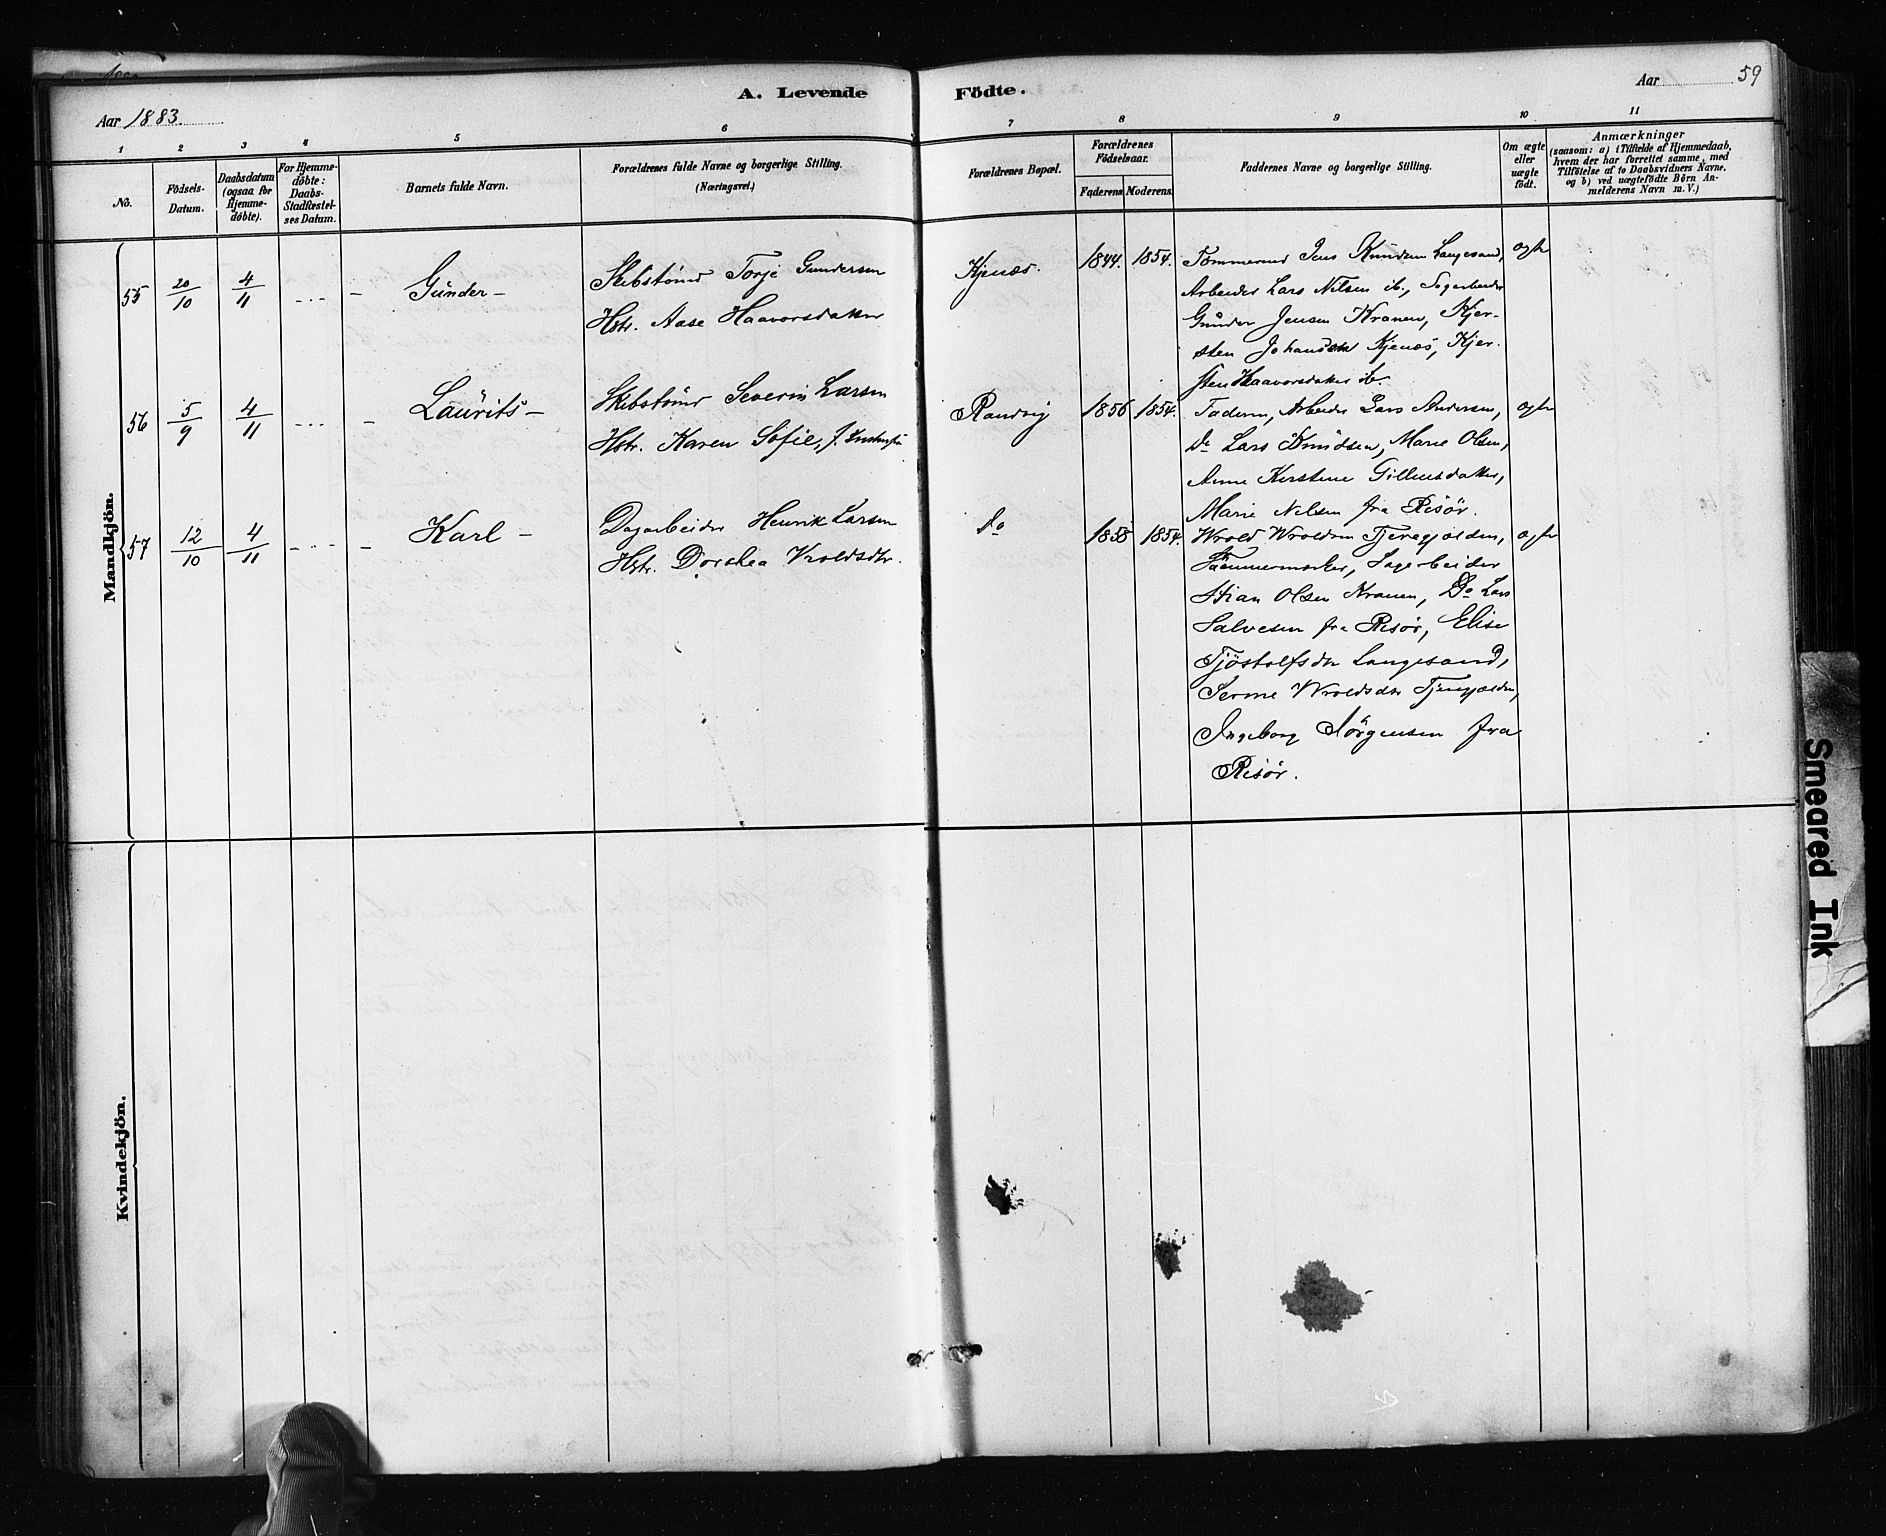 59
A. Levende Födte.
Aar 1883.
Aar
1 2 3 4 5 6 7 8 9 10 11
No.
Födsels-Datum.
Daabsdatum (ogsaa for Hjemme-döbte).
For Hjemme-döbte: Daabs-Stadfæstel-ses Datum.
Barnets fulde Navn.
Forældrenes fulde Navne og borgerlige Stilling.
(Næringsvei.)
Forældrenes Bopæl.
Forældrenes Födselsaar.
Faderens Moderens.
Faddernes Navne og borgerlige Stilling.
Om ægte eller uægte födt.
Anmærkninger
(saasom: a) i Tilfælde af Hjemmedaab,
hvem der har forrettet samme, med
Tilföielse af to Daabsvidners Navne,
og b) ved uægtefödte Börn An-
melderens Navn m. V.)
Mandkjön.
55 20/10 4/11 - . . . - Gunder - Skibstømd Torje Gundersen
Hstr. Aase Haavorsdatter
Kjenæs. 1844. 1854.
Tømmermd Jens Knudsen Langesand,
Arbeider Lars Nilsen ib., Sagarbeider
Gunder Jensen Kranen, Kjer-
sten Johansdtr Kjenæs, Kjer-
sten Haavorsdatter ib.
ægte
56 5/9 4/11 - . . . - Laurits - Skibstømd Severin Larsen
Hstr. Karen Sofie, f.
Randvig 1856 1854.
Faderen, Arbeider Lars Andersen,
Do Lars Knudsen, Marie Olsen,
Anne Kirstene Gillensdatter,
Marie Nilsen fra Risør.
ægte
57 12/10 4/11 - . . . - Karl - Dagarbeider Henrik Larsen
Hstr. Dorthea Vroldsdtr.
Do 1858 1854.
Wrold Wroldsen
Sagarbeider
Stian Olsen Kranen, Do Lars
Salvesen fra Risør, Elise
Tjöstolfsdtr Langesand,
Wroldsdtr
Ingeborg Jörgensen fra
Risør.
ægte
Kvindekjön.
Smeared Ink